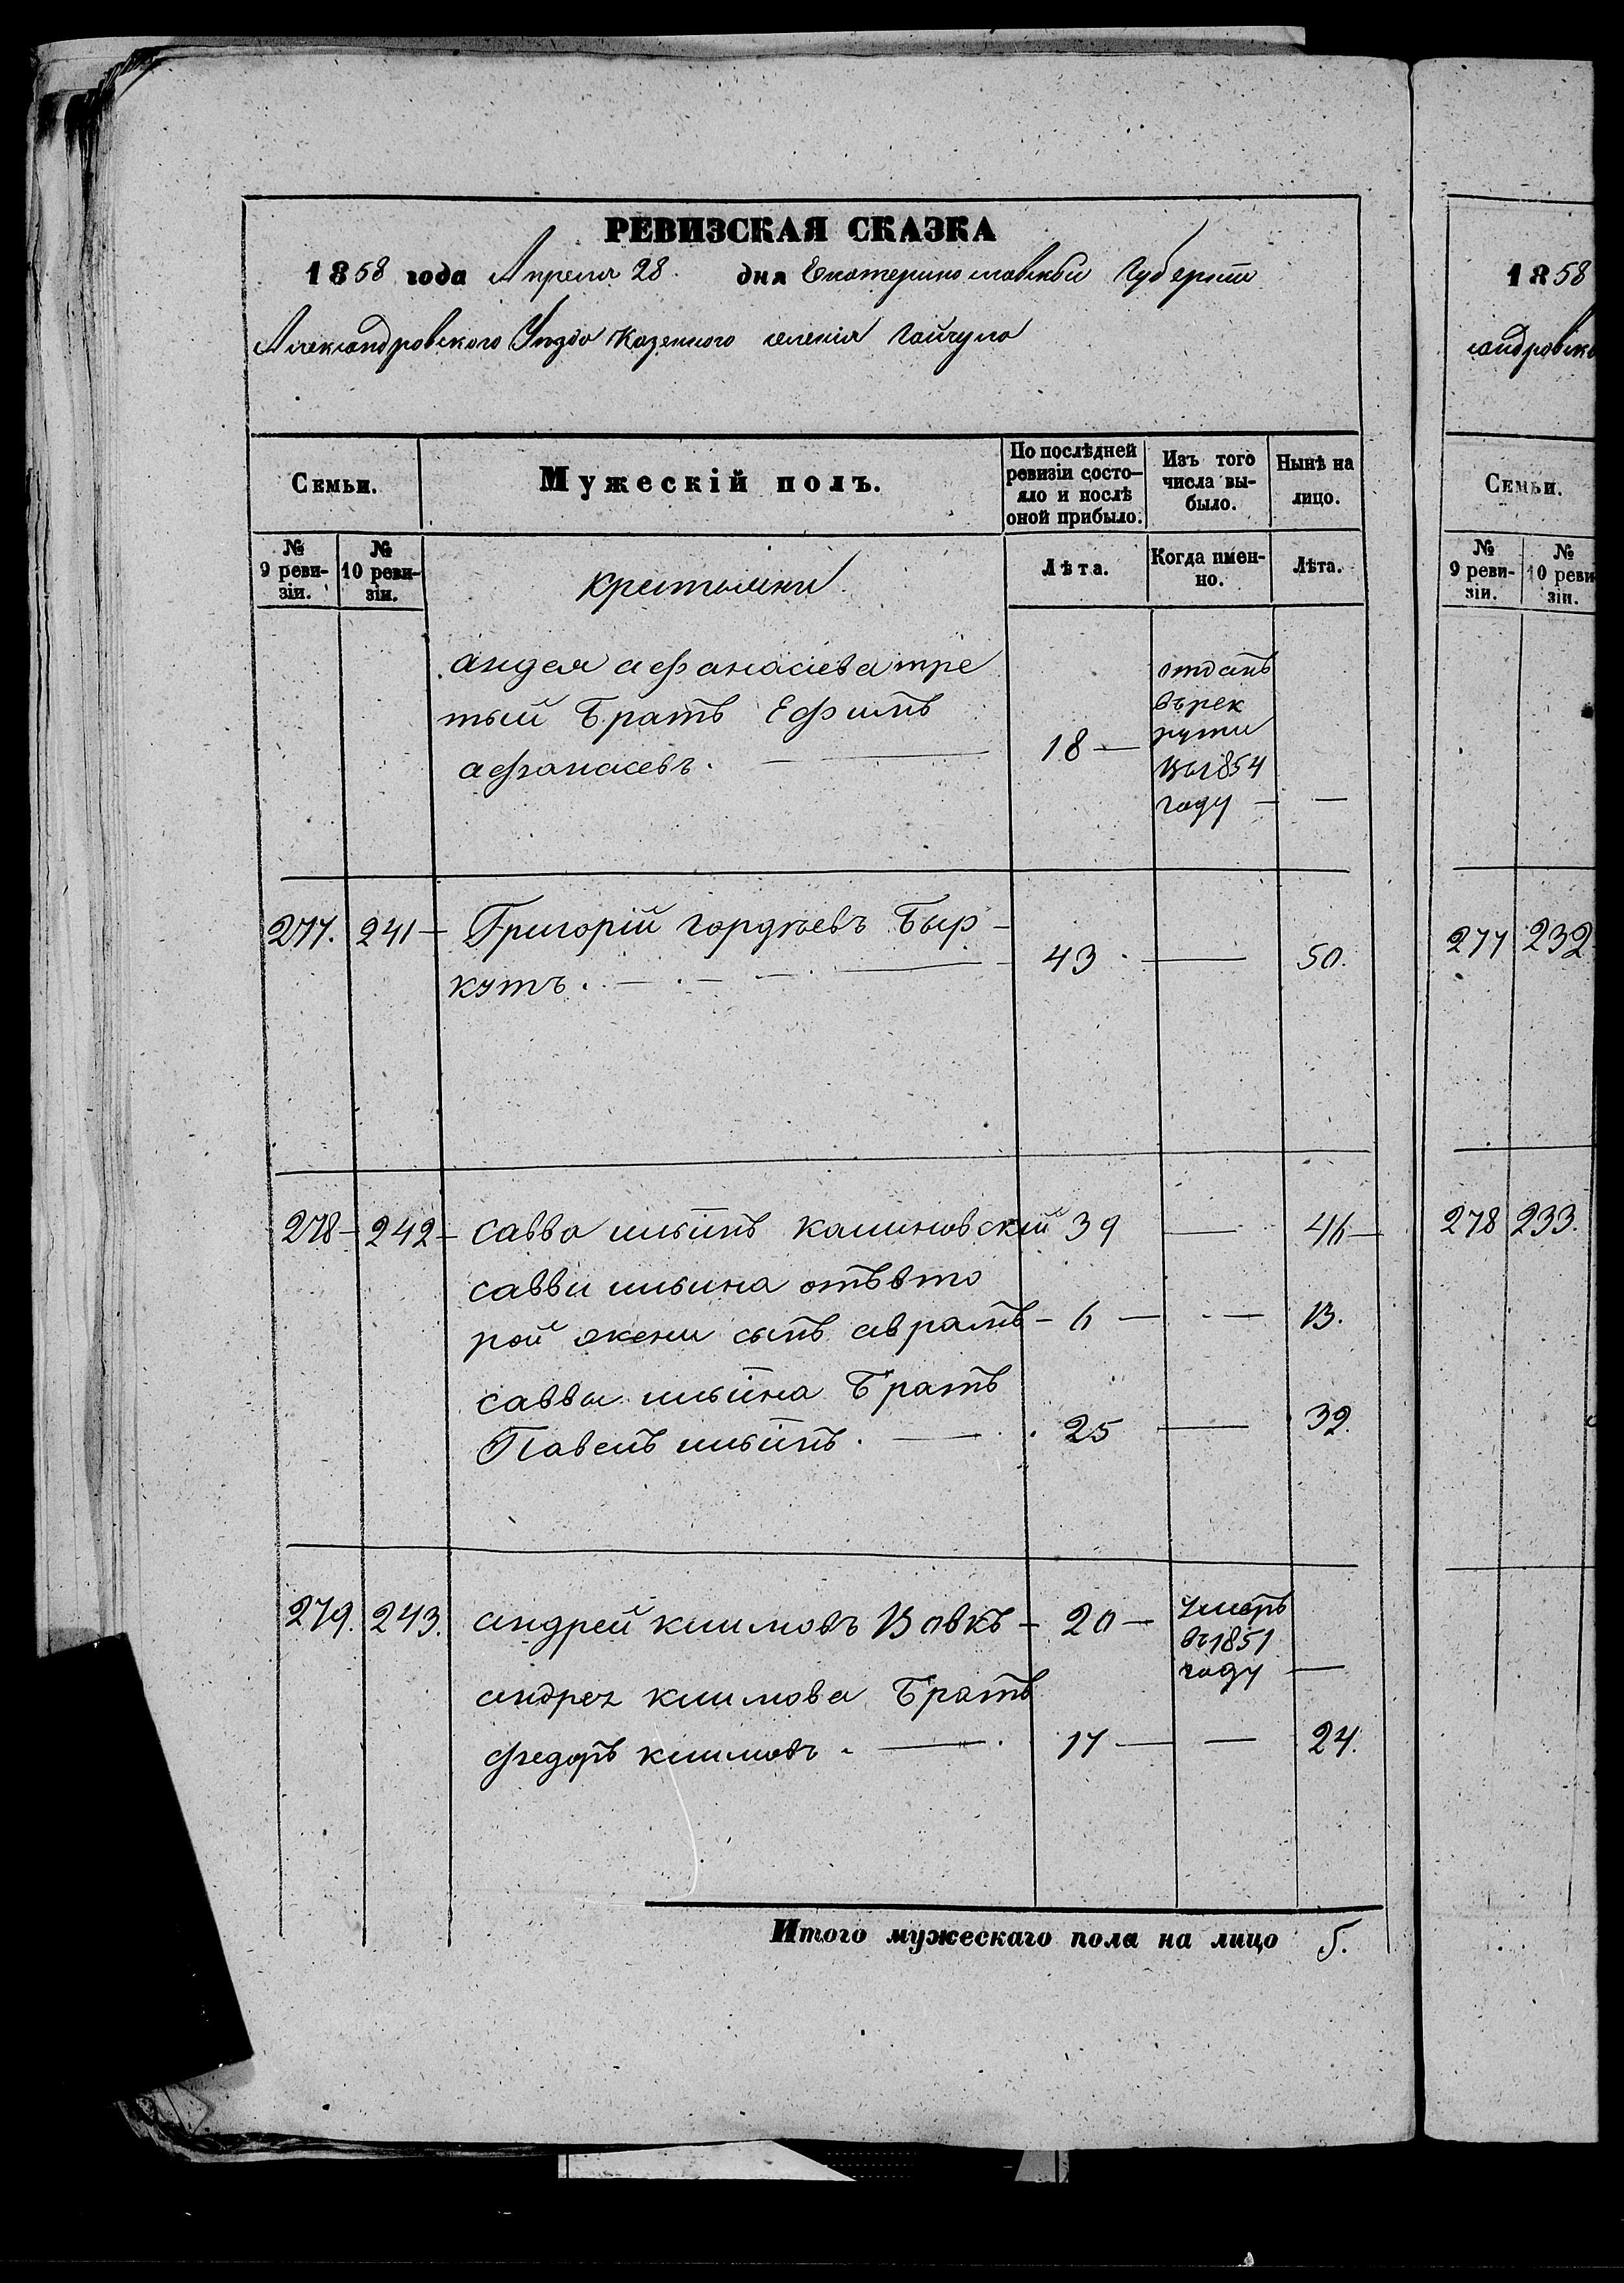 РЕВИЗСКАЯ СКАЗКА
1858 года Апреля 28. дня Екатеринославской Губерніи
Александровского Уезда казенного селенія Гайчула
Семьи. Мужескій полъ. По послѣдней ревизіи состо-яло и послѣ оной прибыло. Изъ того числа вы-было. Нынѣ на лицо.
№ 9 реви-зіи. № 10 реви-зіи. Лѣта. Когда имен-но. Лѣта.
крестьяни
андея афанасіева тре
тьий Братъ Ефимъ
афанасевъ. — 18 —
отданъ
въ рек
рути
въ 1854
году — —
277. 241 — Григорій гордѣевъ Быр-
кутъ. — 43 — 50.
278 — 242 — савва ильінъ калиновскій 39 — 46 —
савви ильина отъ вто
рой жени сынъ аврамъ — 6 — — 13.
саввы ильіна Братъ
Павелъ ильінъ. — 25 — 32.
279. 243. андрей климовъ Вовкъ — 20 —
умеръ
въ 1851
году —
андрея климова Братъ
федоръ климовъ. — 17 — — 24.
Итого мужескаго пола на лицо 5.
1858
сандровско
Семьи.
№ 9 реви-зіи. № 10 реви зіи.
277 232
278 233.